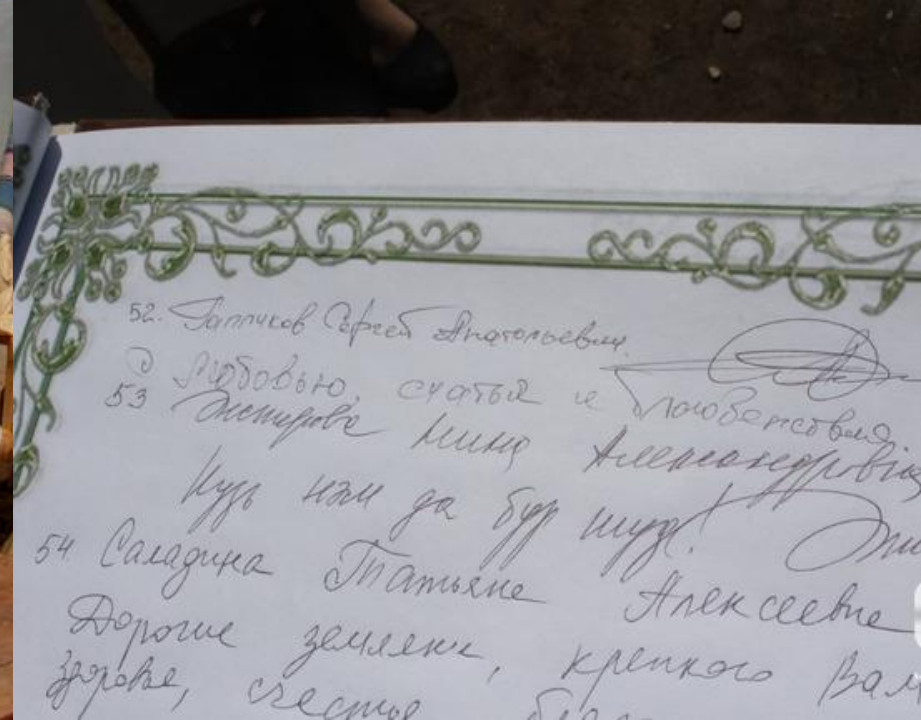 52. Гапликов Сергей Анатольевич.
С любовью, счастья и благоденствия
53 Нина Александровна
Кузь нэм да бур шуд!
54 Саладина Татьяна Алексеевна
Дорогие земляки, крепкого Вам
здоровья, счастья